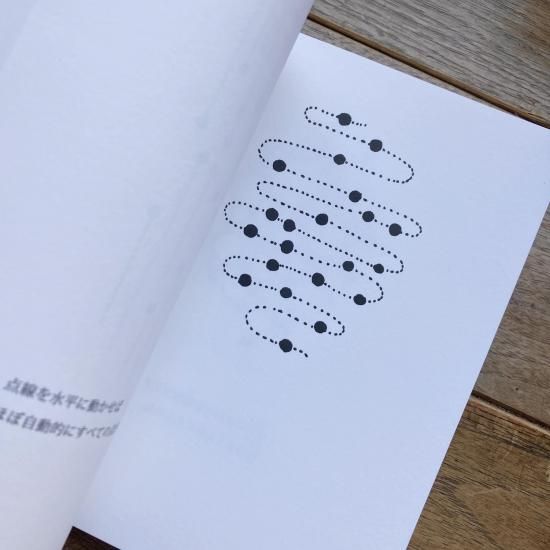 点線を水平に動かせば
ほぼ自動的にすべての